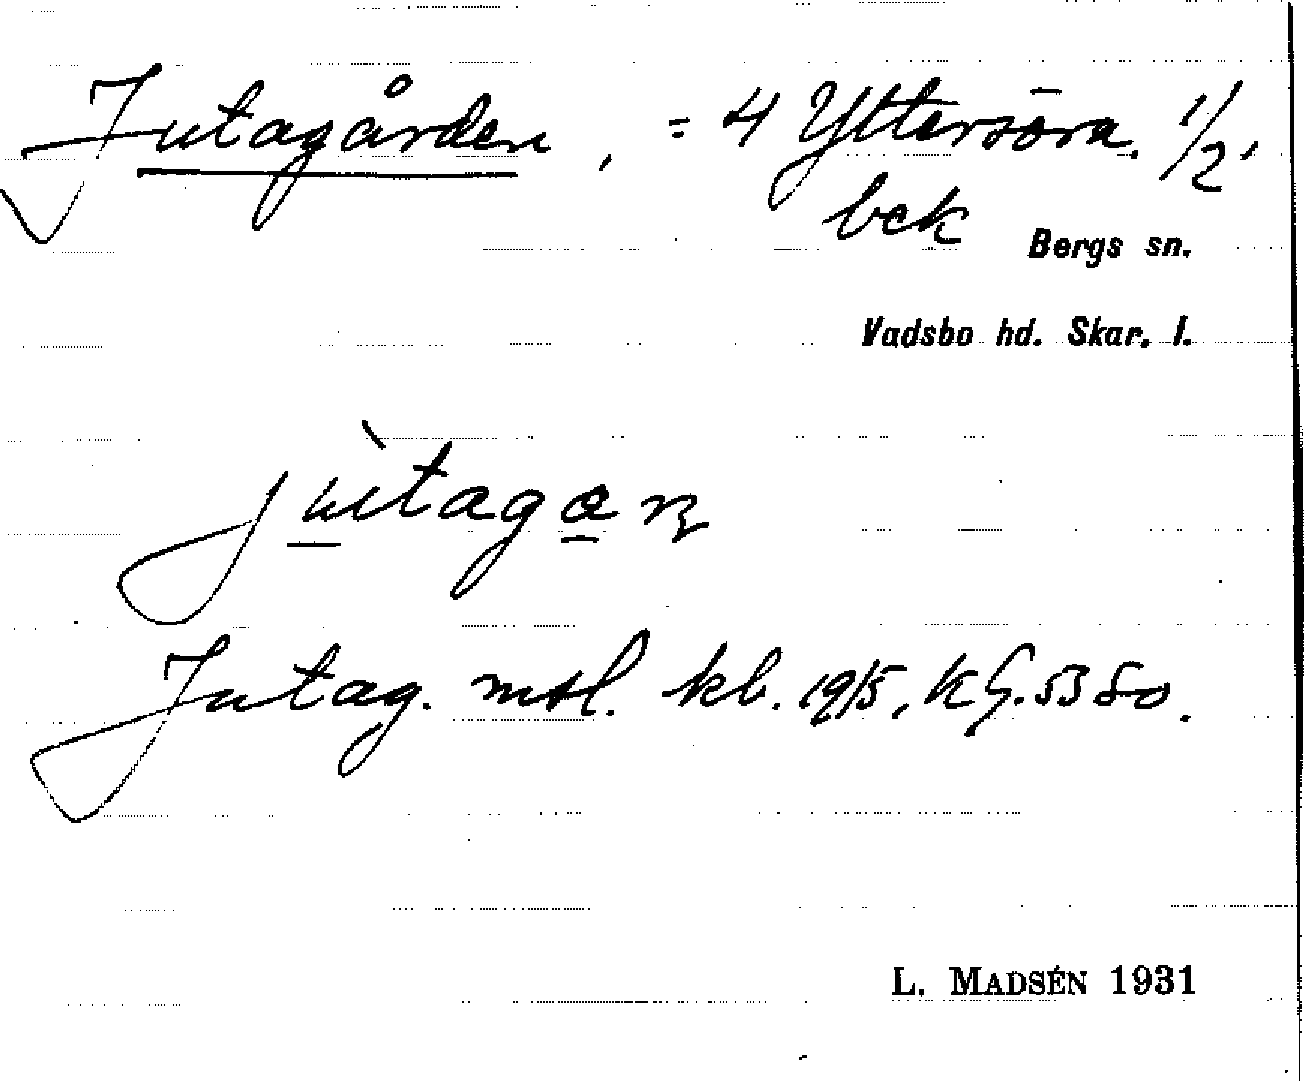 Jutagården, = 4 Yttersöra. 1/2.
bek
Bergs sn.
Vadsbo hd. Skar. l.
jùtagan
Jutag. mtl. kb. 1915, KG. 53 80.
L. MADSÉN 1931